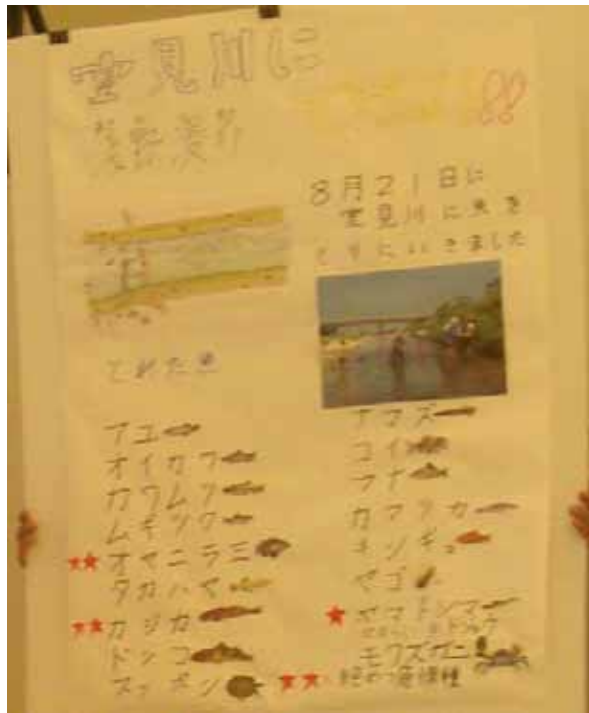 室見川に
8月21日に
室見川に魚を
とりにいきました
とれた魚
アユ
オイカワ
カワムツ
ムギツク
★★オヤニラミ
タカハヤ
★★カジカ
ドンコ
スッポン
ナマズ
コイ
フナ
カマツカ
キンギョ
ヤゴ
★ヤマトシマ
ドジョウ
モクズガニ
★★絶めつ危惧種